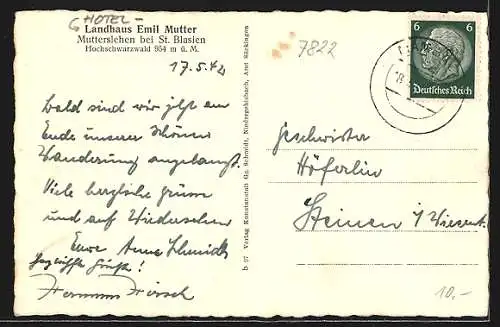 HOTEL -
Landhaus Emil Mutter
Mutterslehen bei St. Blasien
Hochschwarzwald 954 m ü. M.
17.5.42
bald sind wir jetzt am
Ende unserer schönen
Wanderung angelangt.
Viele herzliche Grüsse
und auf Wiedersehen
Eure Anne Schmidt
Grüße!
Hermann
b 97 Verlag Kunstanstalt Gg. Schmidt, Niedergebisbach, Amt Säckingen
7822
6 6
Deutsches Reich
Geschwister
Höferlin
Steinen i/Wiesent.
10,-